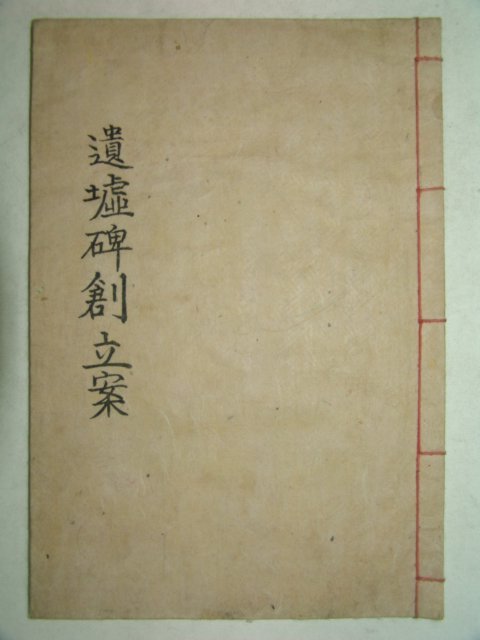 遺墟碑創立案